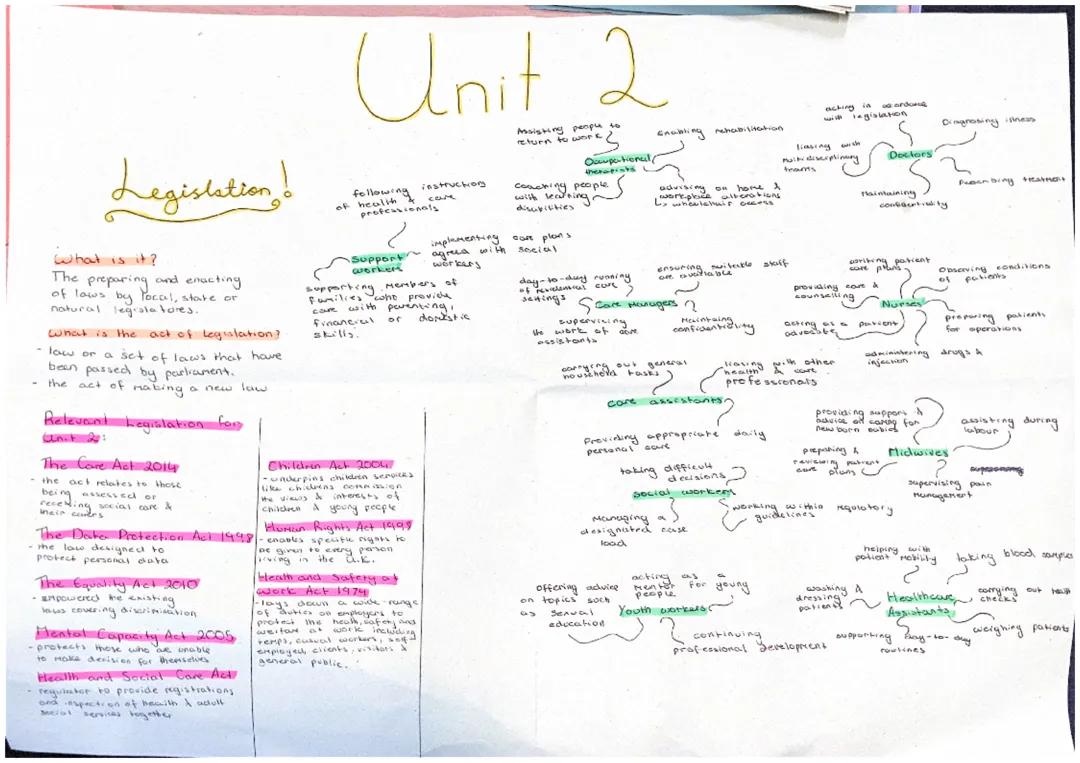 Unit 2
Legislation!
What is it?
The preparing and enacting
of laws by local, state or
natural legislatures.
What is the act of legislation?
- law or a set of laws that have
been passed by parliament.
- the act of making a new law
Relevant Legislation for
Unit 2:
The Care Act 2014
- the act relates to those
being assessed or
receiving social care &
their carers
The Data Protection Act 1998
- the law designed to
protect personal data
The Equality Act 2010
- empowered the existing
laws covering discrimination
Mental Capacity Act 2005
- protects those who are unable
to make decision for themselves
Health and Social Care Act
- regulator to provide registrations
and inspection of health & adult
social services together
Children Act 2004
- underpins children services
like childrens commission
the views & interests of
children & young people
Human Rights Act 1998
- enables specific rights to
be given to every person
living in the U.K.
Health and Safety at
Work Act 1974
- lays down a wide range
of duties on employers to
protect the health, safety and
welfare at work including
temps, casual workers, self
employed, clients, visitors &
general public.
Support
workers
following instructions
of health & care
professionals
implementing care plans
agreed with social
workers
supporting members of
families who provide
care with parenting,
financial or domestic
skills.
Occupational
therapists
Assisting people to
return to work
Enabling rehabilitation
coaching people
with learning
disabilities
advising on home &
workplace alterations
↳ wheelchair access
Doctors
acting in accordance
with legislation
Diagnosing illness
liasing with
multidisciplinary
teams
Maintaining
confidentiality
Prescribing treatment
Care Managers
day-to-day running
of residential care
settings
ensuring suitable staff
are available
supervising
the work of care
assistants
Maintaing
confidentiality
Nurses
writing patient
care plans
Observing conditions
of patients
providing care &
counselling
acting as a patient
advocate
preparing patients
for operations
administering drugs &
injection
care assistants
carrying out general
household tasks
liasing with other
health & care
professionals
Providing appropriate daily
personal care
Midwives
providing support &
advice on caring for
newborn babies
assisting during
labour
preparing &
reviewing patient
care plans
supervising pain
management
social workers
taking difficult
decisions
Managing a
designated case
load
working within regulatory
guidelines
Youth workers
Offering advice
on topics such
as sexual
education
acting as a
mentor for young
people
continuing
professional development
Healthcare
Assistants
helping with
patient mobility
taking blood samples
washing &
dressing
patients
carrying out health
checks
supporting day-to-day
routines
weighing patients